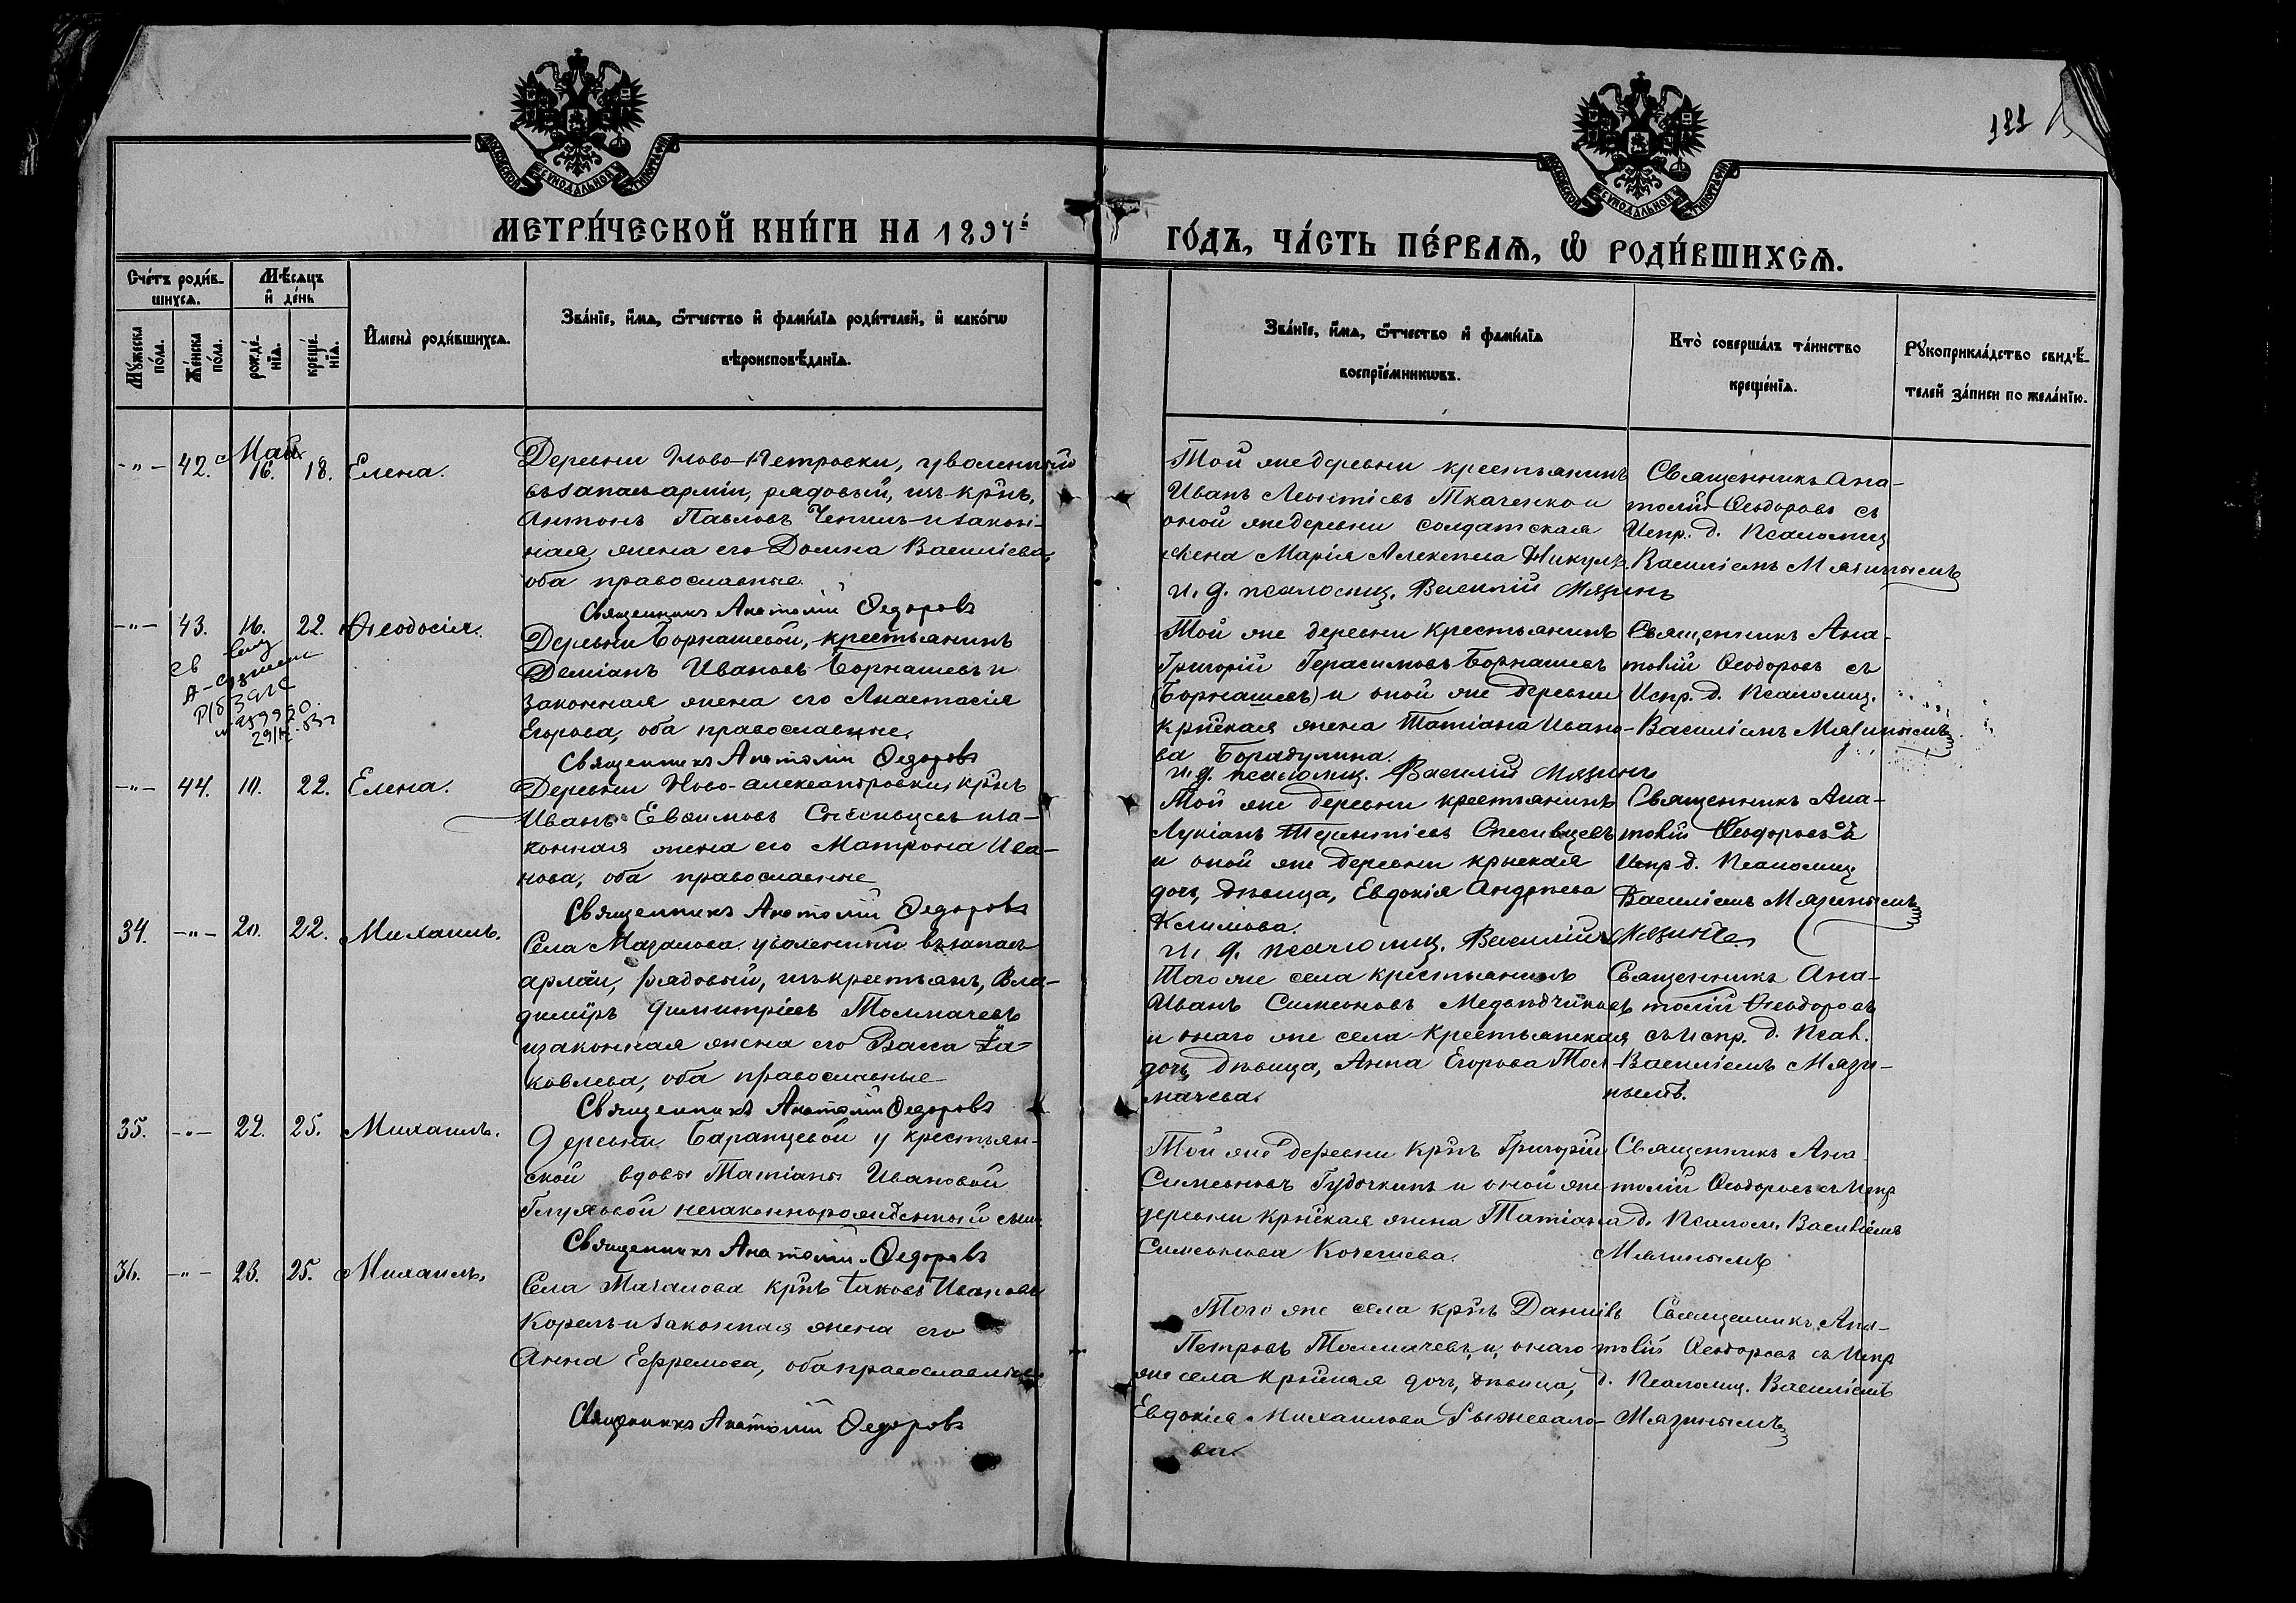 122
МОСКОВСКОЙ СѴНОДАЛЬНОЙ ТИПОГРАФІИ
МОСКОВСКОЙ СѴНОДАЛЬНОЙ ТИПОГРАФІИ
МЕТРИ́ЧЕСКОЙ КНИ́ГИ НА 1894й
ГО́ДЪ, ЧА́СТЬ ПЕ́РВАѦ, Ѡ РОДИ́ВШИХСѦ.
Сче́тъ роди́в-
шихсѧ.
Мѣ́сѧцъ
и҆ де́нь
Мꙋ́жеска по́ла.
Же́нска по́ла.
рожде́-
нїѧ.
креще́-
нїѧ.
И҆мена̀ роди́вшихсѧ.
Зва́нїе, и҆́мѧ, ѻ҆́тчество и҆ фами́лїѧ роди́телей, и҆ како́гѡ
вѣроисповѣ́данїѧ.
Зва́нїе, и҆́мѧ, ѻ҆́тчество и҆ фами́лїѧ
воспрїе́мникѡвъ.
Кто̀ соверша́лъ та́инство
креще́нїѧ.
Рꙋкоприкла́дство свидѣ́-
телей за́писи по жела́нїю.
Май
-"- 42. 16. 18. Елена.
Деревни Ново-Петровки, уволенный
въ запасъ арміи, рядовый, изъ кр̃нъ,
Антонъ Павловъ и закон-
ная жена его Домна Василіева,
оба православные.
Священникъ Анатолій Ѳедоровъ
Той же деревни крестьянинъ
Иванъ Леонтіевъ Ткаченко и
оной же деревни солдатская
жена Марія Алексѣева
и. д. псаломщ. Василій Мязинъ
Священникъ Ана-
толій Ѳеодоровъ съ
Испр. д. Псаломщ.
Василіемъ Мязинымъ
-"- 43. 16. 22. Ѳеодосія.
Деревни Борнашевой, крестьянинъ
Деміанъ Ивановъ Борнашевъ и
законная жена его Анастасія
Егорова, оба православные.
Священникъ Анатолій Ѳедоровъ
Той же деревни крестьянинъ
Григорій Герасимовъ Борнашевъ
(Борнашевъ) и оной же деревни
кр̃нская жена Татіана Ивано-
ва Борадулина.
и. д. псаломщ. Василій Мязинъ
Священникъ Ана-
толій Ѳеодоровъ съ
Испр. д. Псаломщ.
Василіемъ Мязинымъ
-"- 44. 19. 22. Елена.
Деревни Ново-Александровки, кр̃нъ
Иванъ Евѳимовъ Спесивцевъ и за-
конная жена его Матрона Ива-
нова, оба православные
Священникъ Анатолій Ѳедоровъ
Той же деревни крестьянинъ
Лукіанъ Терентіевъ Спесивцевъ
и оной же деревни кр̃нская
дочь, дѣвица, Евдокія Андреева
Климова.
и. д. псаломщ. Василій Мязинъ
Священникъ Ана-
толій Ѳеодоровъ съ
Испр д. Псаломщ.
Василіемъ Мязинымъ
34. -"- 20. 22. Михаилъ.
Села Мазалова уволенный въ запасъ
арміи, рядовый, изъ крестьянъ, Вла-
диміръ Димитріевъ Толмачевъ
и законная жена его Васса Іа-
ковлева, оба православные
Священникъ Анатолій Ѳедоровъ
Того же села крестьянинъ
Иванъ Симеоновъ Медвѣдчиковъ
и онаго же села крестьянская
дочь, дѣвица, Анна Егорова Тол-
мачева.
Священникъ Ана-
толій Ѳеодоровъ
съ Испр. д. Псал.
Василіемъ Мязи-
нымъ.
35. -"- 22. 25. Михаилъ.
Деревни Баранцевой у крестьян-
ской вдовы Татіаны Ивановой
Глуховой незаконнорожденный сынъ
Священникъ Анатолій Ѳедоровъ
Той же деревни кр̃нъ Григорій
Симеоновъ Гудочкинъ и оной же
деревни кр̃нская жена Татіана
Симеонова Кочешева.
Священникъ Ана-
толій Ѳеодоровъ съ Испр
д. Псалом. Василіемъ
Мязинымъ
36. -"- 23. 25. Михаилъ.
Села Мазалова кр̃нъ Іаковъ Ивановъ
Корель и законная жена его
Анна Ефремова, оба православные.
Священникъ Анатолій Ѳедоровъ
Того же села кр̃нъ Даніилъ
Петровъ Толмачевъ, и, онаго
же села кр̃нская дочь, дѣвица,
Евдокія Михаилова Рыжевало-
ва.
Священникъ Ана-
толій Ѳеодоровъ съ Испр
д. Псаломщ. Василіемъ
Мязинымъ